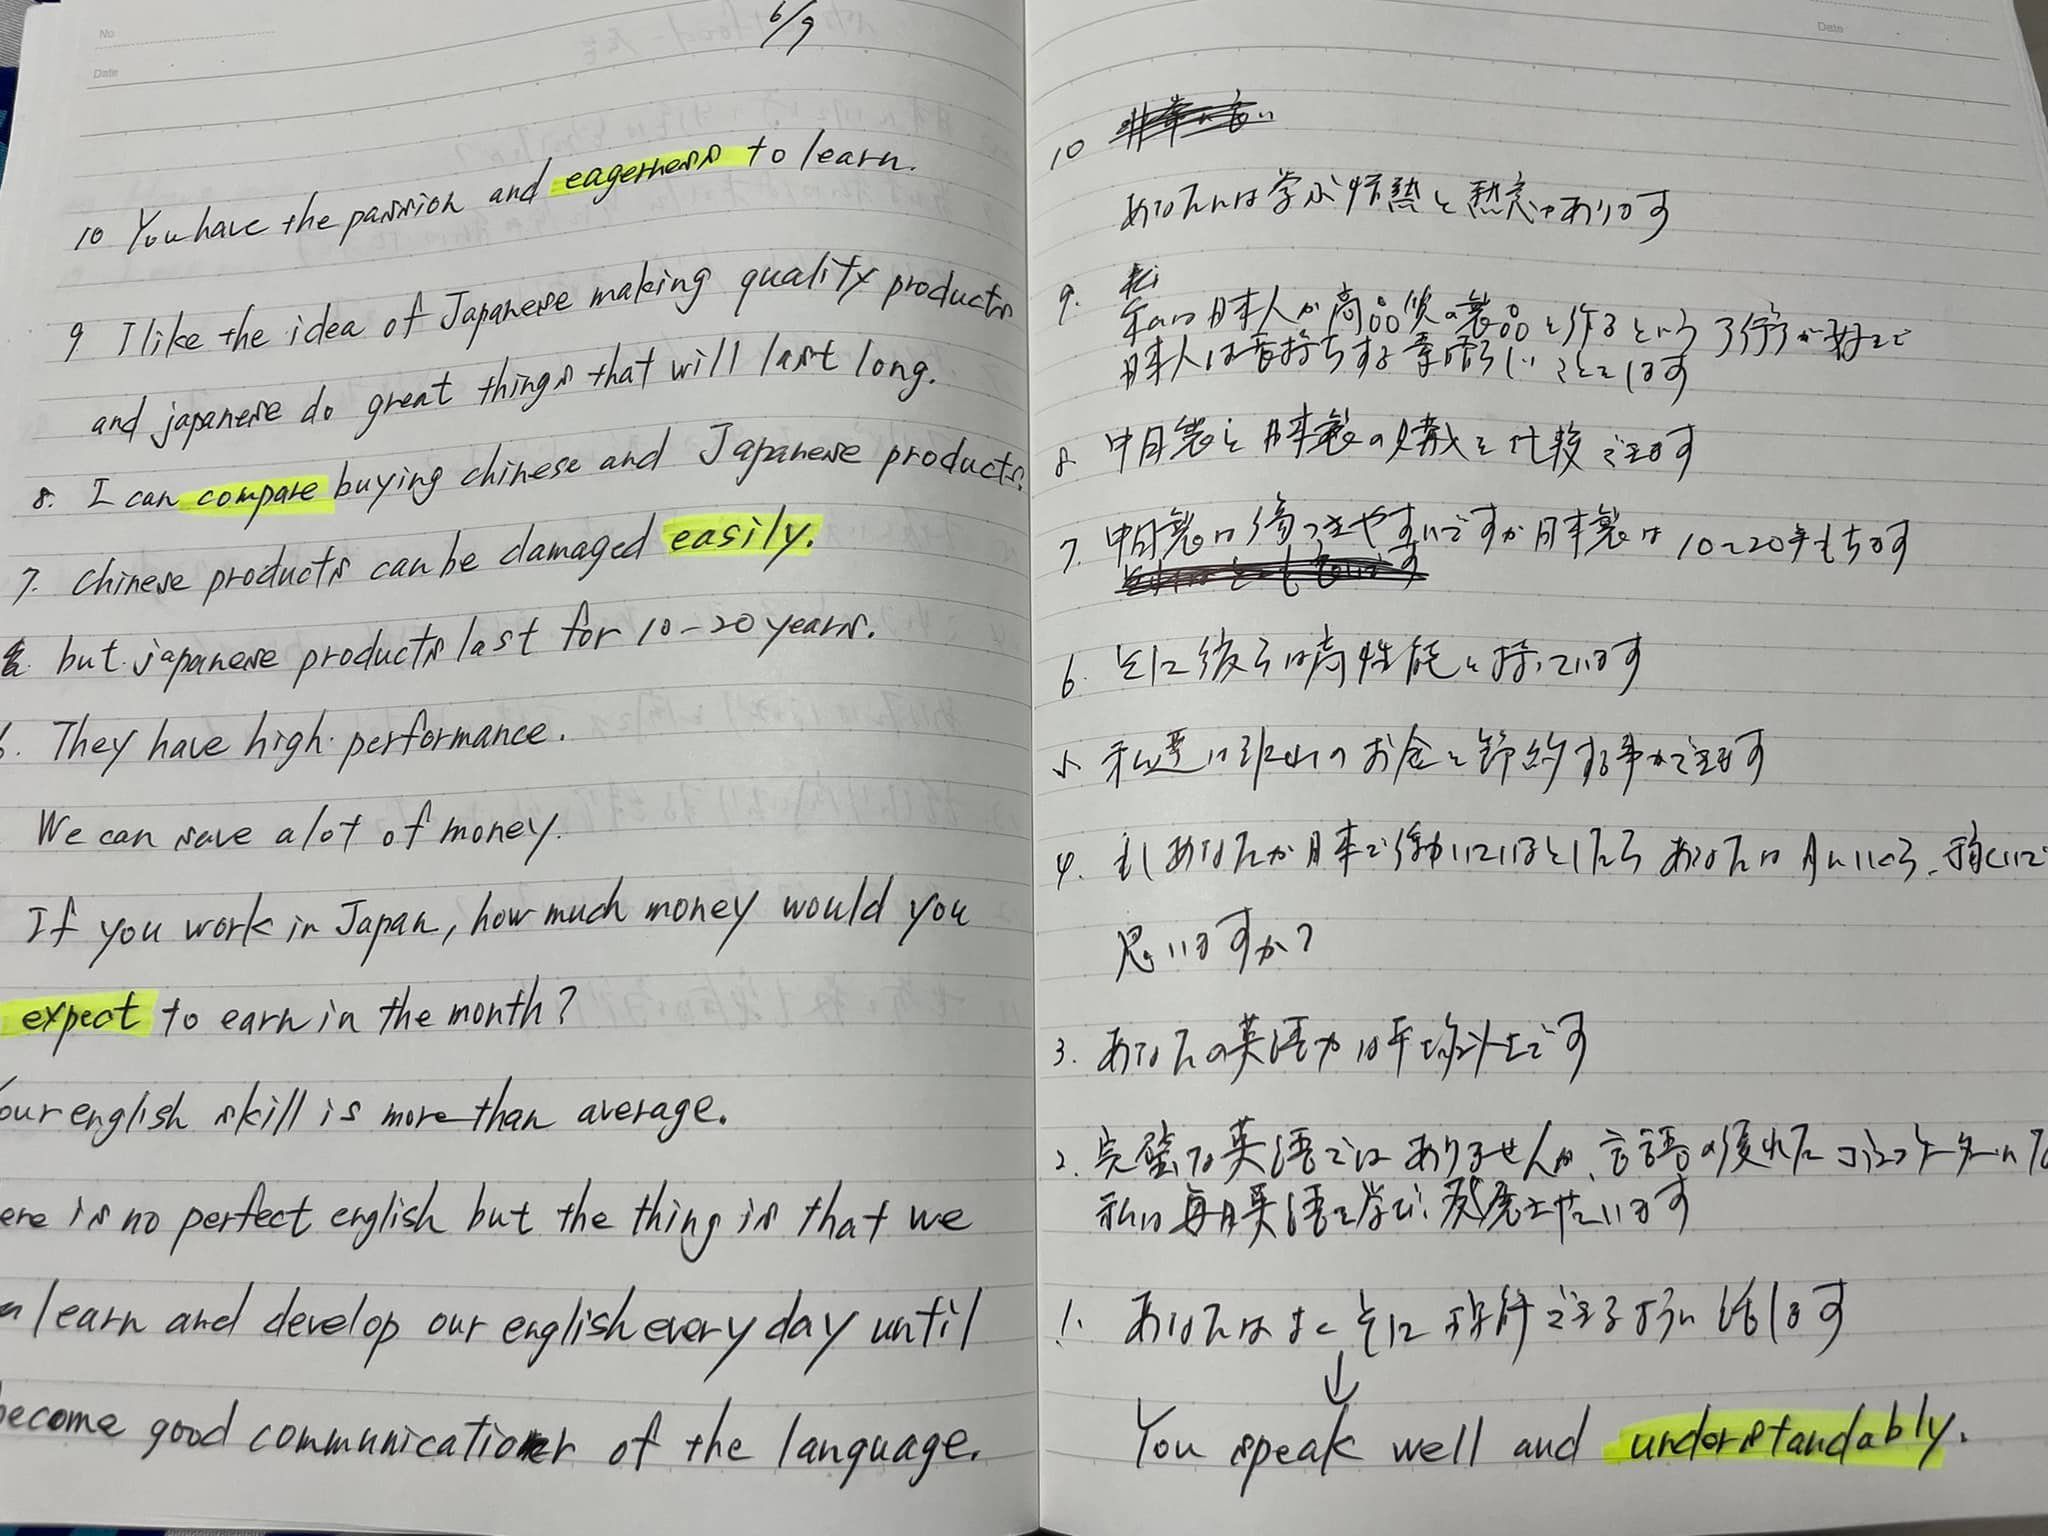 No
Date
6/9
10 You have the passion and eagerness to learn.
9 I like the idea of Japanese making quality products
and japanese do great things that will last long.
8. I can compare buying chinese and Japanese products.
7. chinese products can be damaged easily.
but japanese products last for 10-20 years.
6. They have high performance.
We can save a lot of money.
If you work in Japan, how much money would you
expect to earn in the month?
our english skill is more than average.
ere is no perfect english but the thing is that we
n learn and develop our english every day until
become good communicationer of the language.
Date
10
あなたは学ぶ情熱と熱意があります
9. 私は日本人が高品質の製品を作るという が好きで
日本人は長持ちする素晴らしいことをします
8 中国製と日本製の購入を比較できます
7. 中国製は傷つきやすいですが日本製は10~20年もちます
6. それに彼らは高性能を持っています
5. 私達は沢山のお金を節約する事ができます
4. もしあなたが日本で働いているとしたらあなたは月にいくら 稼いで
思いますか?
3. あなたの英語力は平均以上です
2. 完璧な英語ではありませんが、言語の優れた
私は毎日英語を学び、発展させています
1. あなたは よく それに 理解できるように 話します
↓
You speak well and understandably.